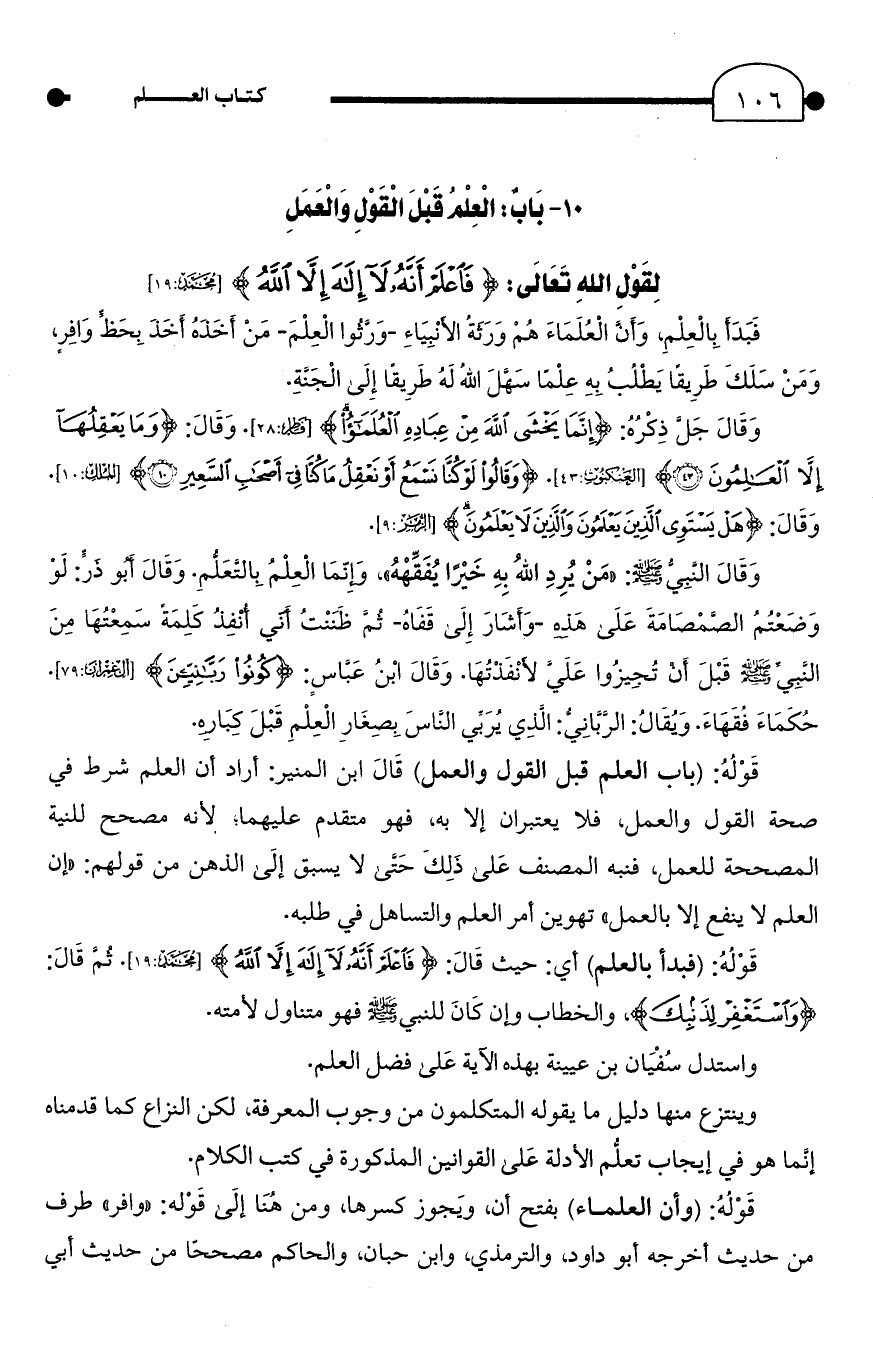 ١٠٦
كتاب العـــــلم
١٠- بَابٌ: الْعِلْمُ قَبْلَ الْقَوْلِ وَالْعَمَلِ
لِقَوْلِ اللهِ تَعَالَى: ﴿ فَٱعْلَمْ أَنَّهُۥ لَآ إِلَٰهَ إِلَّا ٱللَّهُ ﴾ [مُحَمَّد:١٩]
فَبَدَأَ بِالْعِلْمِ، وَأَنَّ الْعُلَمَاءَ هُمْ وَرَثَةُ الأَنْبِيَاءِ -وَرَّثُوا الْعِلْمَ- مَنْ أَخَذَهُ أَخَذَ بِحَظٍّ وَافِرٍ،
وَمَنْ سَلَكَ طَرِيقًا يَطْلُبُ بِهِ عِلْمًا سَهَّلَ اللهُ لَهُ طَرِيقًا إِلَى الْجَنَّةِ.
وَقَالَ جَلَّ ذِكْرُهُ: ﴿إِنَّمَا يَخْشَى ٱللَّهَ مِنْ عِبَادِهِ ٱلْعُلَمَٰٓؤُا۟ۗ ﴾ [فاطر:٢٨]. وَقَالَ: ﴿وَمَا يَعْقِلُهَآ
إِلَّا ٱلْعَٰلِمُونَ ٤٣﴾ [العَنكبوت:٤٣]. ﴿وَقَالُوا۟ لَوْ كُنَّا نَسْمَعُ أَوْ نَعْقِلُ مَا كُنَّا فِىٓ أَصْحَٰبِ ٱلسَّعِيرِ ١٠﴾ [المُلك:١٠].
وَقَالَ: ﴿هَلْ يَسْتَوِى ٱلَّذِينَ يَعْلَمُونَ وَٱلَّذِينَ لَا يَعْلَمُونَۗ ﴾ [الزُّمَر:٩].
وَقَالَ النَّبِيُّ ﷺ: «مَنْ يُرِدِ اللهُ بِهِ خَيْرًا يُفَقِّهْهُ»، وَإِنَّمَا الْعِلْمُ بِالتَّعَلُّمِ. وَقَالَ أَبُو ذَرٍّ: لَوْ
وَضَعْتُمُ الصَّمْصَامَةَ عَلَىٰ هَذِهِ -وَأَشَارَ إِلَى قَفَاهُ- ثُمَّ ظَنَنْتُ أَنِّي أُنْفِذُ كَلِمَةً سَمِعْتُهَا مِنَ
النَّبِيِّ ﷺ قَبْلَ أَنْ تُجِيزُوا عَلَيَّ لأَنْفَذْتُهَا. وَقَالَ ابْنُ عَبَّاسٍ: ﴿كُونُوا۟ رَبَّٰنِيِّـۧنَ﴾ [آل عمران:٧٩].
حُكَمَاءَ فُقَهَاءَ. وَيُقَالُ: الرَّبَّانِيُّ: الَّذِي يُرَبِّي النَّاسَ بِصِغَارِ الْعِلْمِ قَبْلَ كِبَارِهِ.
قَوْلُهُ: (باب العلم قبل القول والعمل) قَالَ ابن المنير: أراد أن العلم شرط في
صحة القول والعمل، فلا يعتبران إلا به، فهو متقدم عليهما؛ لأنه مصحح للنية
المصححة للعمل، فنبه المصنف عَلَىٰ ذَلِكَ حَتَّىٰ لا يسبق إلَى الذهن من قولهم: «إن
العلم لا ينفع إلا بالعمل» تهوين أمر العلم والتساهل في طلبه.
قَوْلُهُ: (فبدأ بالعلم) أي: حيث قَالَ: ﴿ فَٱعْلَمْ أَنَّهُۥ لَآ إِلَٰهَ إِلَّا ٱللَّهُ ﴾ [مُحَمَّد:١٩]. ثُمَّ قَالَ:
﴿وَٱسْتَغْفِرْ لِذَنۢبِكَ﴾، والخطاب وإن كَانَ للنبي ﷺ فهو متناول لأمته.
واستدل سُفْيَان بن عيينة بهذه الآية عَلَىٰ فضل العلم.
وينتزع منها دليل ما يقوله المتكلمون من وجوب المعرفة، لكن النزاع كما قدمناه
إنَّما هو في إيجاب تعلُّم الأدلة عَلَىٰ القوانين المذكورة في كتب الكلام.
قَوْلُهُ: (وأن العلمـاء) بفتح أن، ويَجوز كسرها، ومن هُنَا إلَىٰ قَوْله: «وافر» طرف
من حديث أخرجه أبو داود، والترمذي، وابن حبان، والحاكم مصححًا من حديث أبي